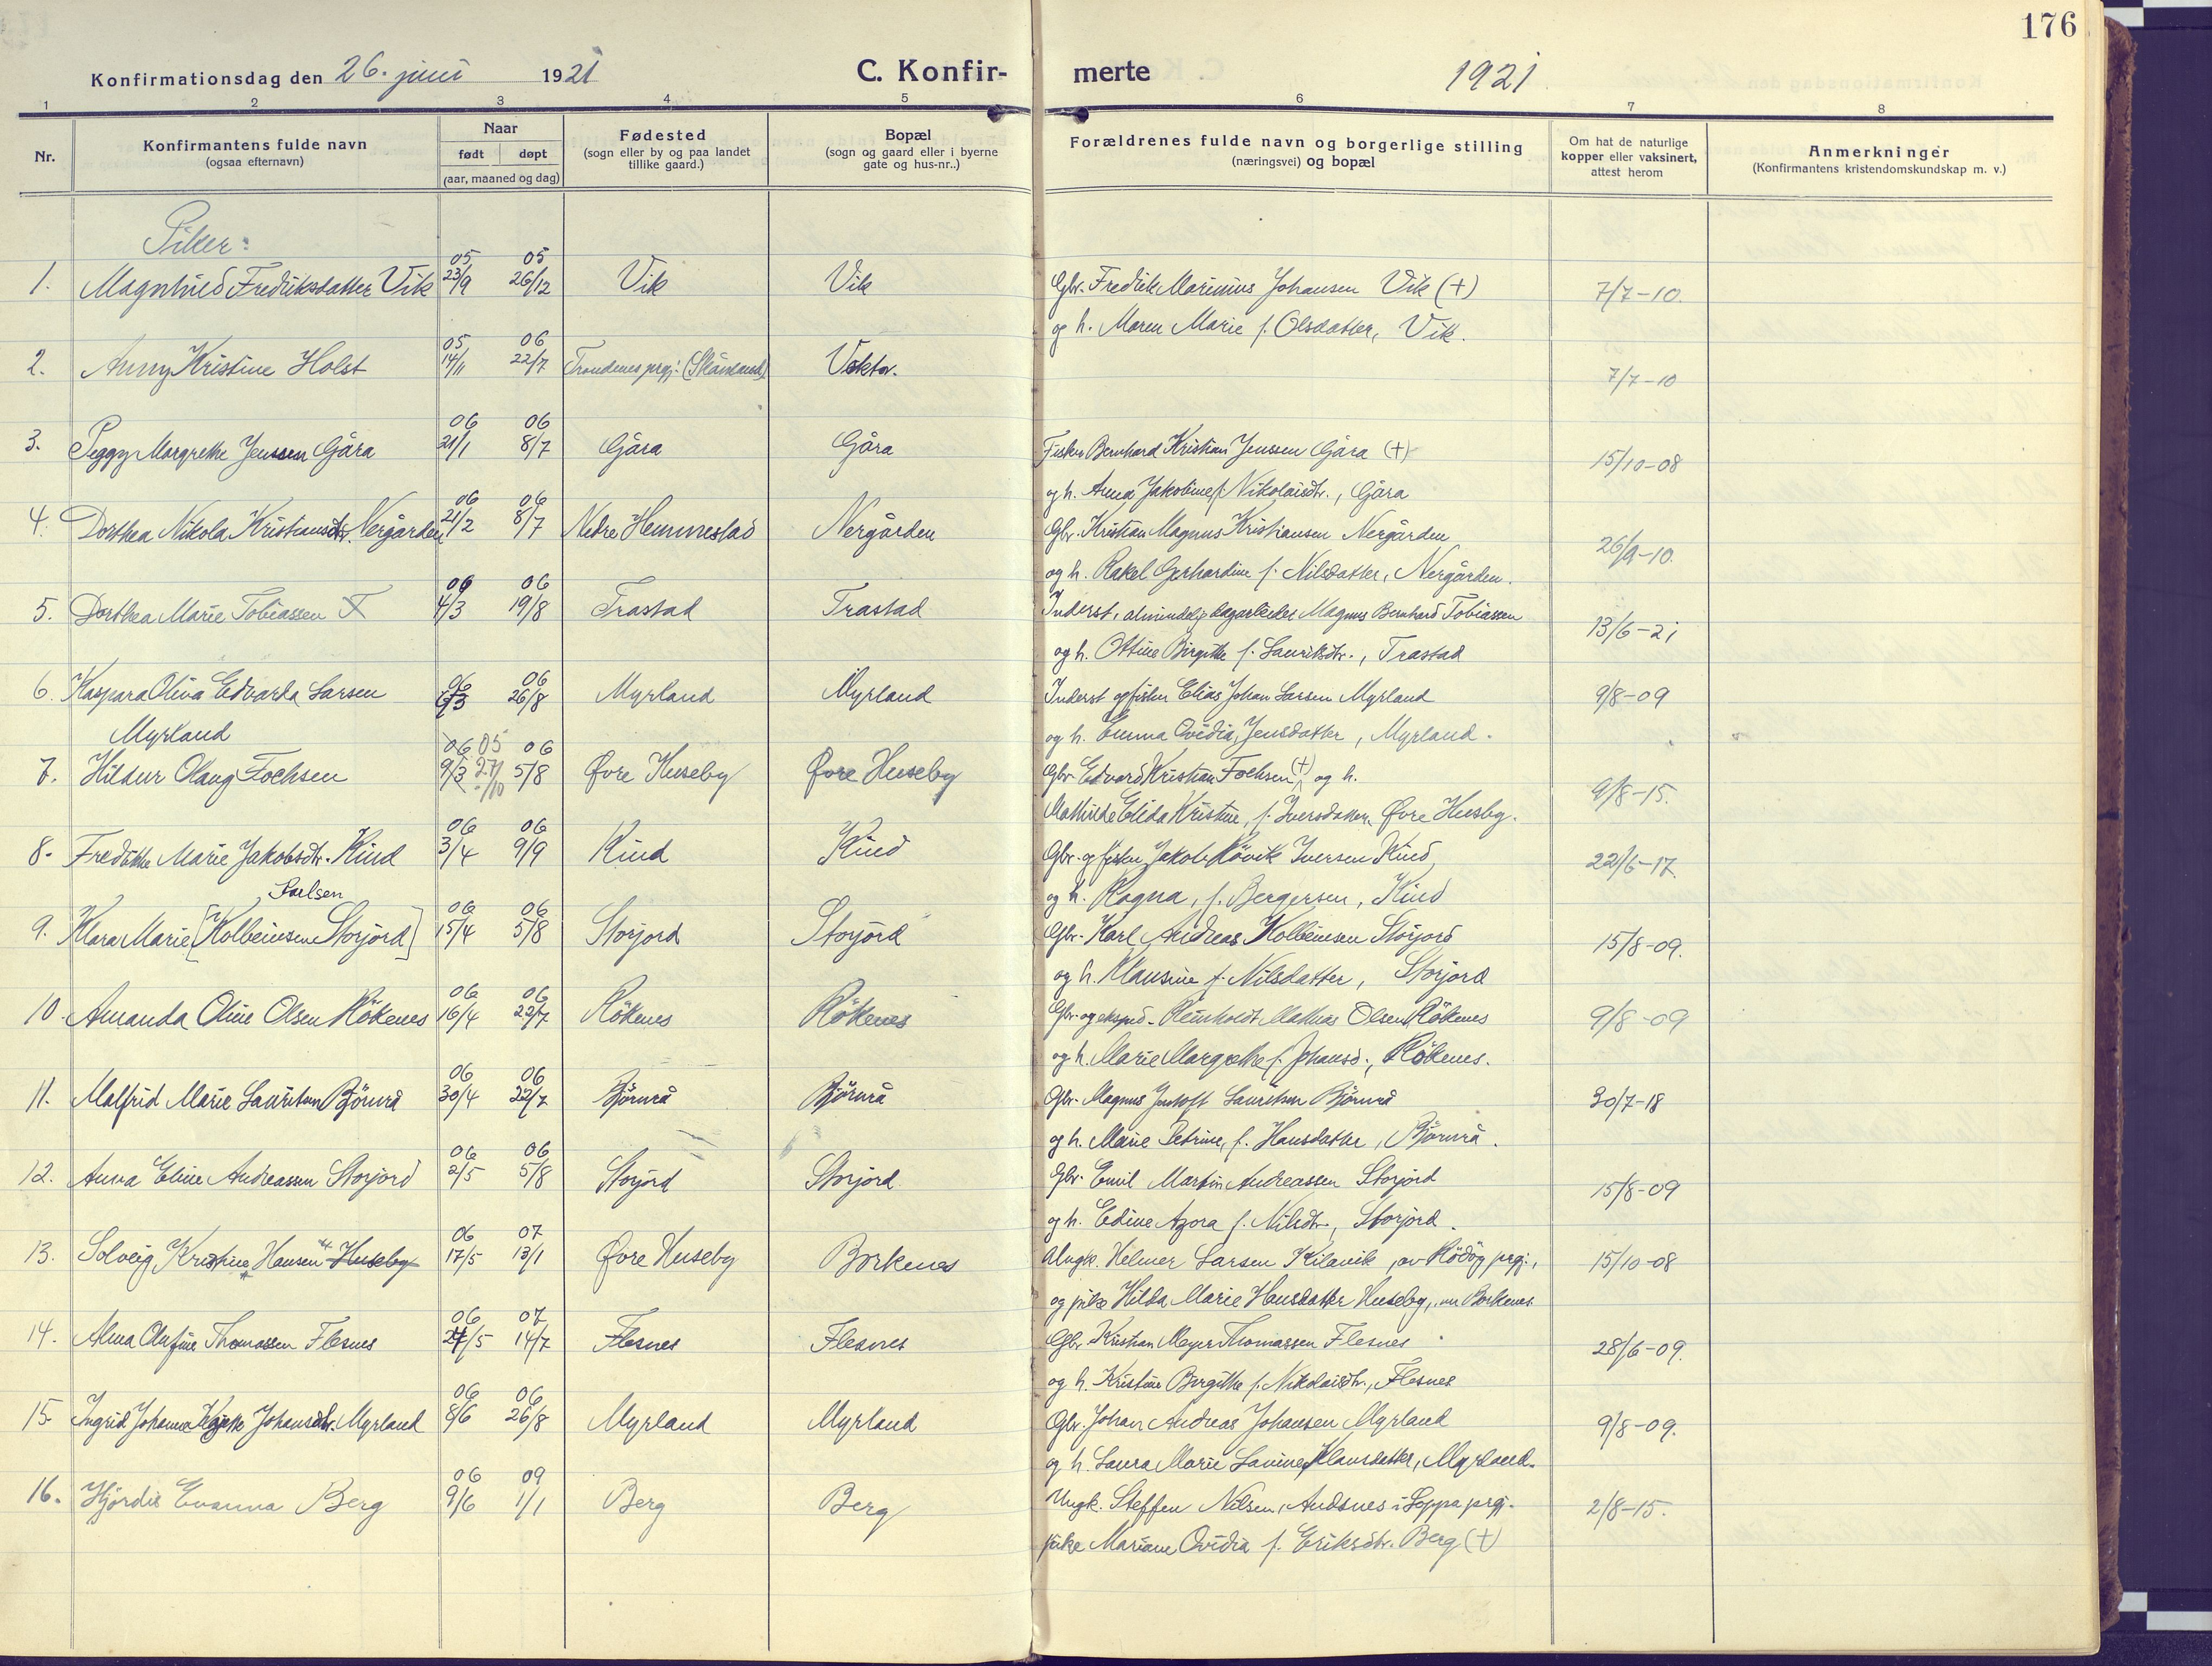 176
Konfirmationsdag den 26. juni 1921
C. Konfirmerte 1921
1 2 3 4 5 6 7 8
Nr.
Konfirmantens fulde navn
(ogsaa efternavn)
Naar
født døpt
(aar, maaned og dag)
Fødested
(sogn eller by og paa landet
tillike gaard.)
Bopæl
(sogn og gaard eller i byerne
gate og hus-nr..)
Forældrenes fulde navn og borgerlige stilling
(næringsvei) og bopæl
Om hat de naturlige
kopper eller vaksinert,
attest herom
Anmerkninger
(Konfirmantens kristendomskundskap m. v.)
Piker:
05 05
1. Magnhild Fredriksdatter Vik 23/9 26/12 Vik Vik Gbr. Fredrik Marinius Johansen Vik (+) 7/7-10.
og h. Maren Marie f. Olsdatter, Vik.
05 06
2. Anny Kristine Holst 14/11 22/7 Trondenes prgj. (Skånland) Voktor. 7/7-10
06 06
3. Peggy Margrethe Jenssen Gåra 21/1 8/7 Gåra Gåra Fisker Bernhard Kristian Jenssen Gåra (+) 15/10-08
og h. Anna Jakobine f. Nikolaisdtr., Gåra
06 06
4. Dorthea Nikola Kristiansdtr. Nergården 21/2 8/7 Nedre Hemmestad Nergården Gbr. Kristian Magnus Kristiansen Nergården 26/9-10.
og h. Rakel Gerhardine f. Nilsdatter, Nergården.
06 06
5. Dorthea Marie Tobiassen T 4/3 19/8 Trastad Trastad Inderst, almindelig dagarbeider Magnus Bernhard Tobiassen 13/6-21
og h. Ottine Birgitte f. Lauriksdtr., Trastad
06 06
6. Kaspara Oliva Edvarda Larsen 6/3 26/8 Myrland Myrland Inderst og fisker Elias Johan Larsen Myrland 9/8-09
Myrland og h. Emma Ovidia, Jensdatter, Myrland.
06 05 06
7. Hildur Olaug Fochsen 9/3 27/10 5/8 Øvre Huseby Øvre Huseby Gbr. Edvard Kristian Fochsen (+), og h. 9/8-15.
Mathilde Elida Kristine, f. Iversdatter, Øvre Huseby.
06 06
8. Fredrikke Marie Jakobsdtr. Kind 3/4 9/9 Kind Kind Gbr. og fisker Jakob Røvik Iversen Kind 22/6-17.
og h. Ragna, f. Bergersen, Kind
Karlsen 06 06
9. Klara Marie [Kolbeinsen Storjord] 15/4 5/8 Storjord Storjord Gbr. Karl Andreas Kolbeinsen Storjord 15/8-09.
og h. Klausine f. Nilsdatter, Storjord
06 06
10. Amanda Oline Olsen Røkenes 16/4 22/7 Røkenes Røkenes Gbr. og eksped. Reinholdt Mathias Olsen Røkenes 9/8-09
og h. Marie Margrethe f. Johansd., Røkenes.
06 06
11. Malfrid Marie Lauritsen Bjørnrå 30/4 22/7 Bjørnrå Bjørnrå Gbr. Magnus Lauritsen Bjørnrå 30/7-18
og h. Marie Petrine, f. Hansdatter, Bjørnrå.
06 06
12. Anna Eline Andreassen Storjord 2/5 5/8 Storjord Storjord Gbr. Emil Martin Andreassen Storjord 15/8-09
og h. Edine Azora f. Nilsdtr., Storjord.
06 07
13. Solveig Kristine Hansen Huseby 17/5 13/1 Øvre Huseby Borkenes Ungk. Helmer Larsen Kilavik, av Rødøy prgj., 15/10-08
og pike Hilda Marie Hansdatter Huseby, nu Borkenes
06 07
14. Alma Olufine Thomassen Flesnes 27/5 14/7 Flesnes Flesnes Gbr. Kristian Meyer Thomassen Flesnes 28/6-09.
og h. Kristine Birgitte f. Nikolaisdtr., Flesnes
06 06
15. Ingrid Johanna Johansdtr. Myrland 8/6 26/8 Myrland Myrland Gbr. Johan Andreas Johansen Myrland 9/8-09.
og h. Laura Marie Lavine, Klausdatter, Myrland.
06 09
16. Hjørdis Evanna Berg 9/6 1/1 Berg Berg Ungk. Steffen Nilsen, Andsnes i Loppa prgj. 2/8-15.
pike Mariane Ovidia f. Eriksdtr. Berg (+)